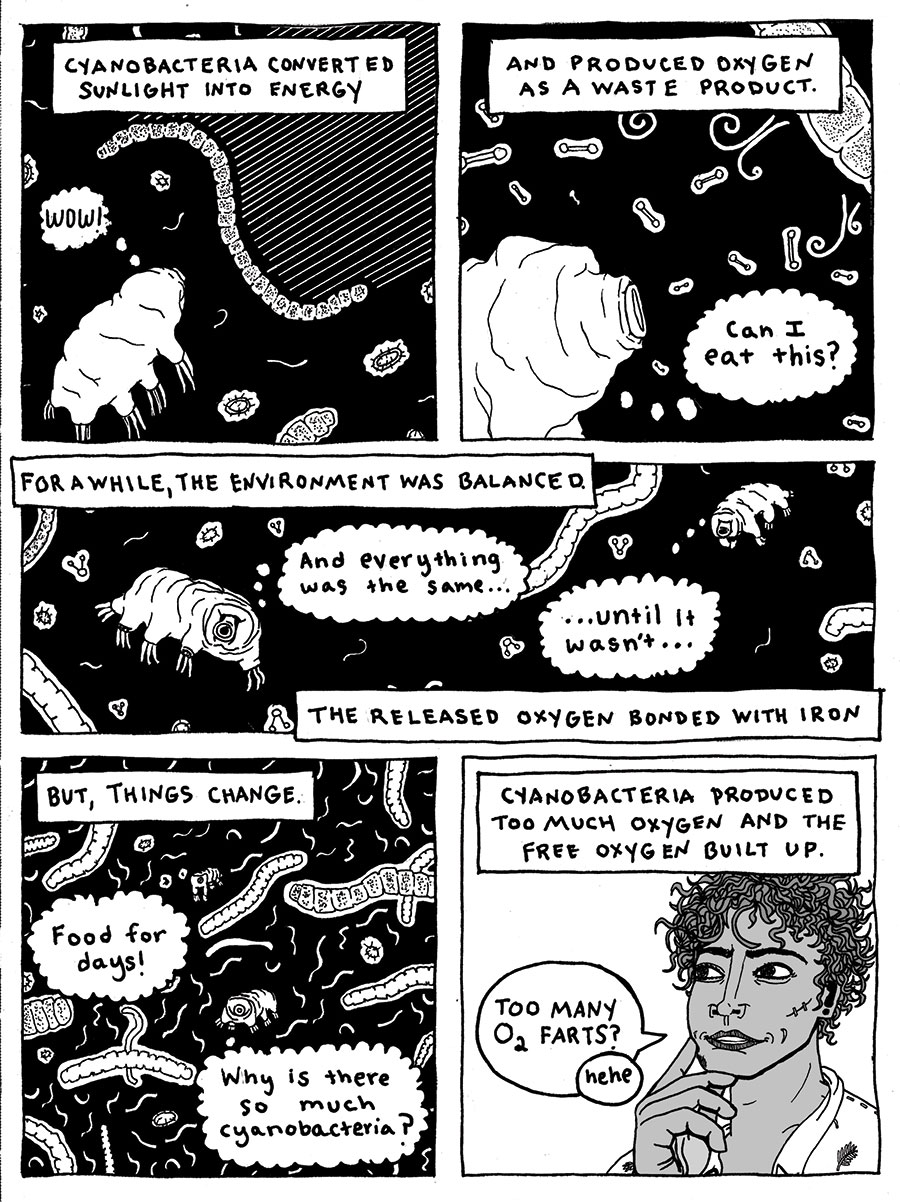 CYANOBACTERIA CONVERTED
SUNLIGHT INTO ENERGY
WOW!
AND PRODUCED OXYGEN
AS A WASTE PRODUCT.
Can I
eat this?
FOR A WHILE, THE ENVIRONMENT WAS BALANCED.
And everything
was the same...
...until it
wasn't...
THE RELEASED OXYGEN BONDED WITH IRON
BUT, THINGS CHANGE.
Food for
days!
Why is there
so much
cyanobacteria?
CYANOBACTERIA PRODUCED
TOO MUCH OXYGEN AND THE
FREE OXYGEN BUILT UP.
TOO MANY
O₂ FARTS?
hehe